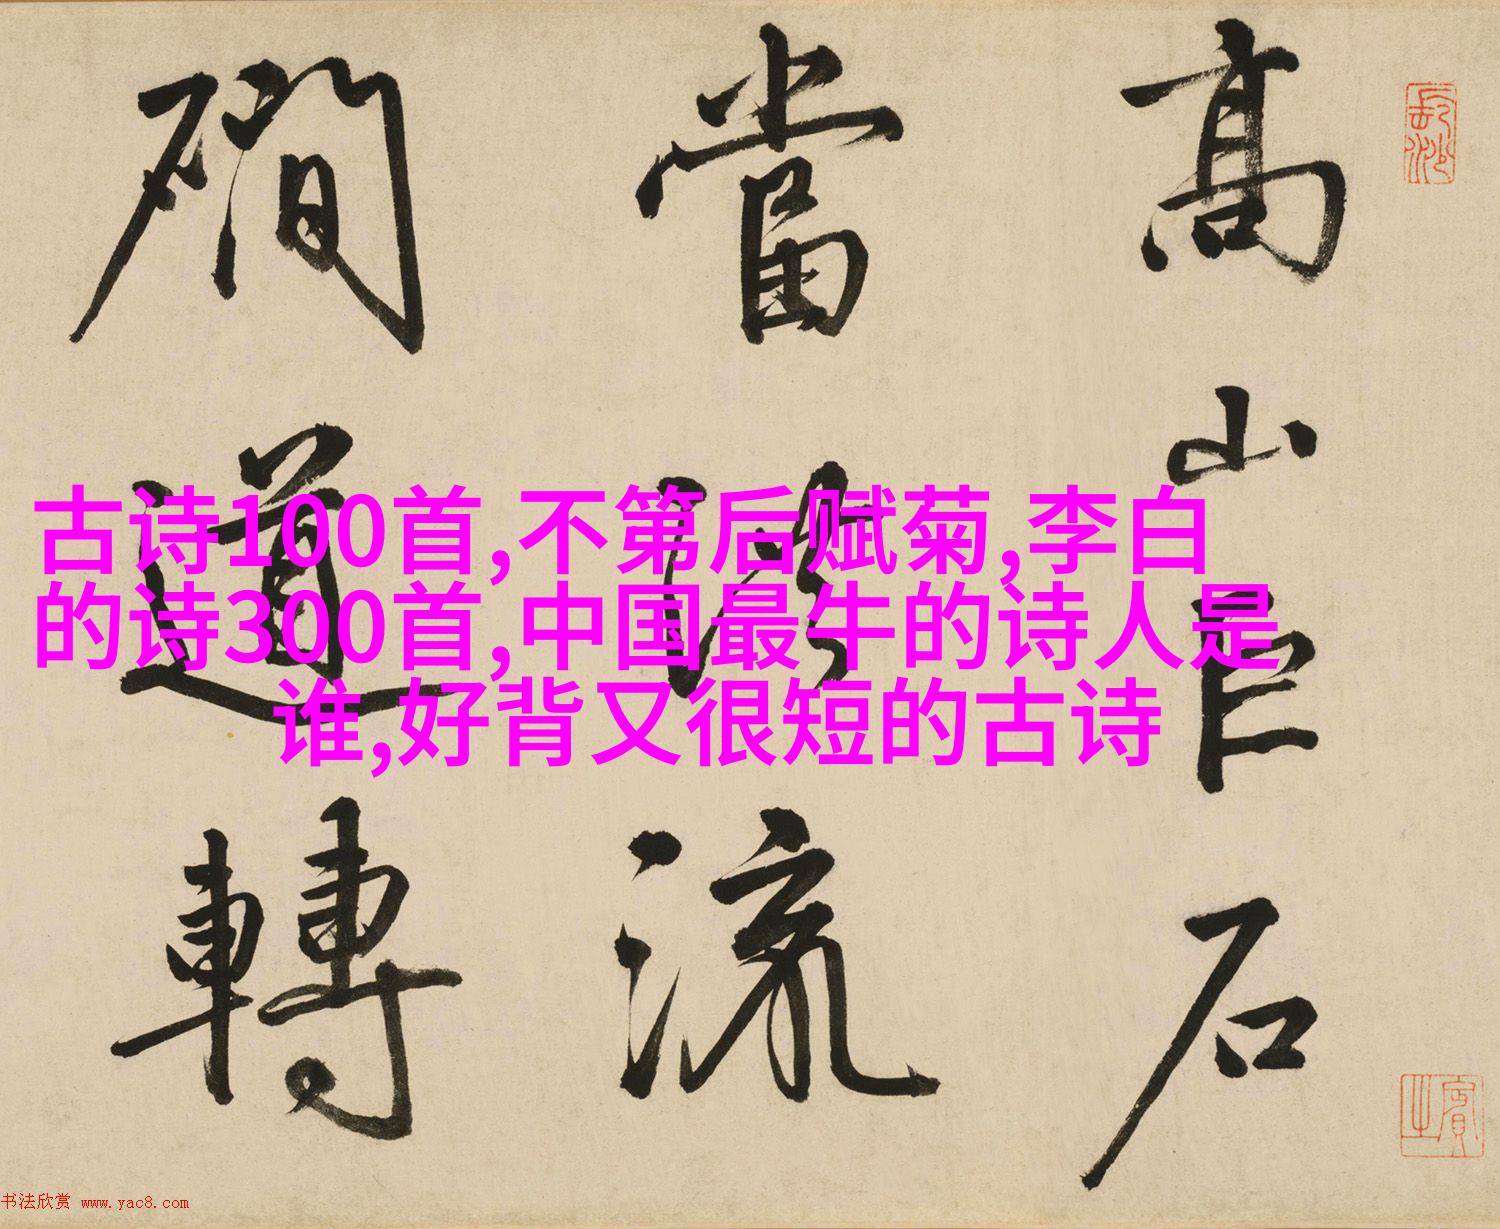 高山片石
當溪流
磵道轉
古诗100首,不第后赋菊,李白
的诗300首,中国最牛的诗人是
谁,好背又很短的古诗
书法欣赏 www.yac8.com